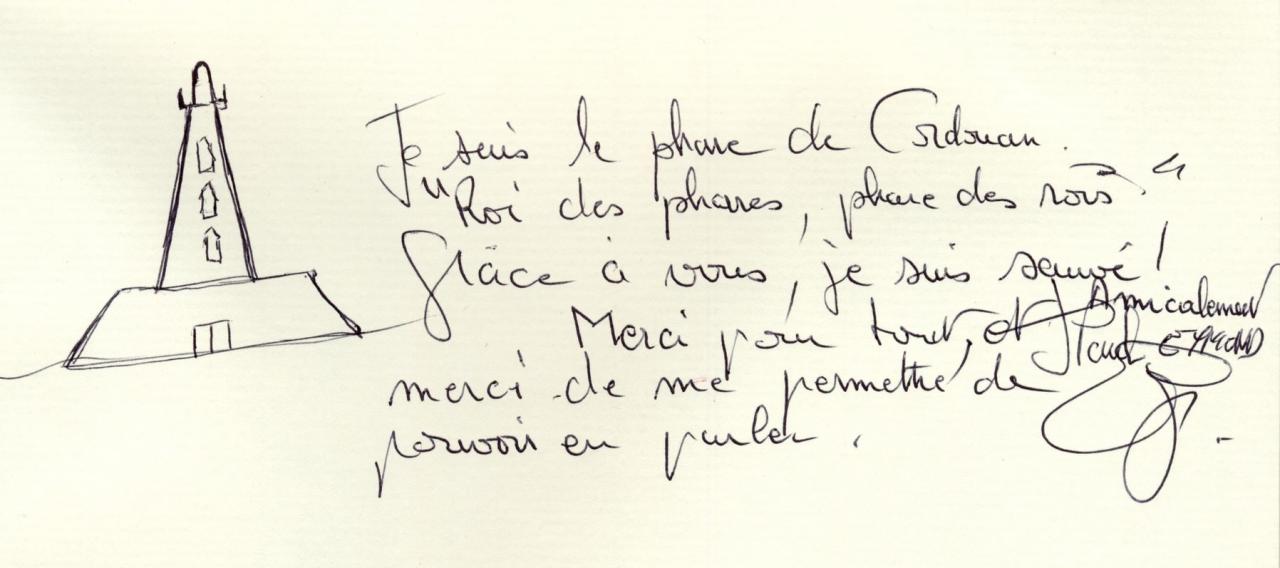 Je suis le phare de Cordouan.
"Roi des phares, phare des rois"
Grâce à vous, je suis sauvé !
Merci pour tout, et
merci de me permettre de
pouvoir en parler.
Amicalement
Paul